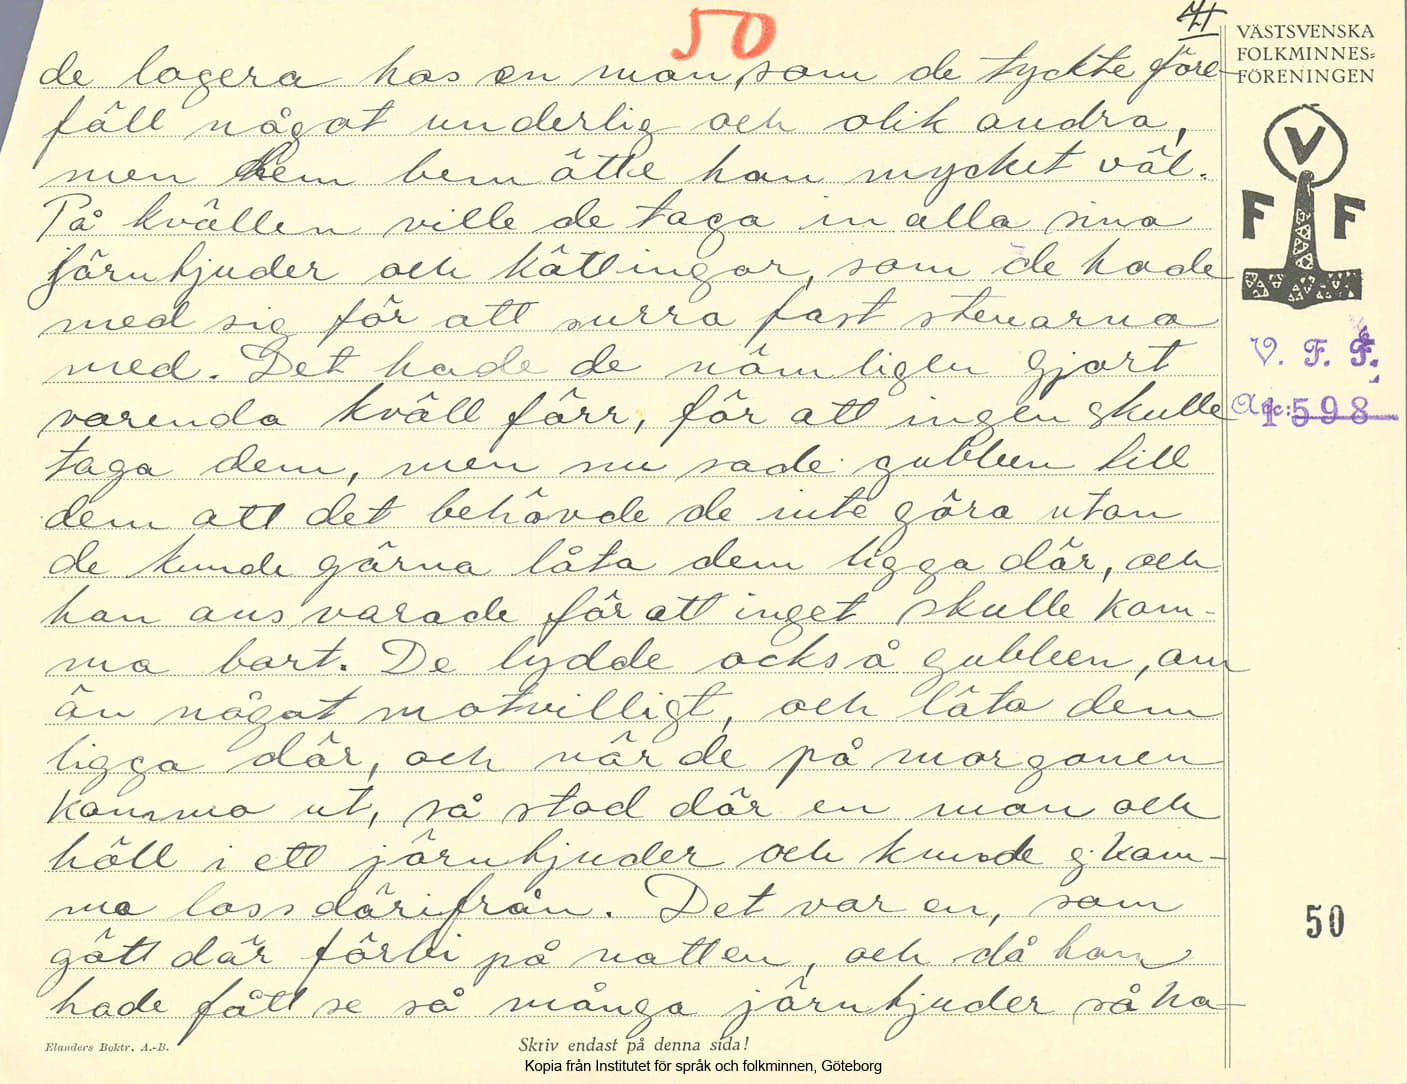 50
41
VÄSTSVENSKA
FOLKMINNES=
FÖRENINGEN
de logera hos en man, som de tyckte före-
föll något underlig och olik andra,
men dem bemötte han mycket väl.
På kvällen ville de taga in alla sina
järnbjuder och kättingar, som de hade
med sig för att surra fast stenarna
med. Det hade de nämligen gjort
varenda kväll förr, för att ingen skulle
taga dem, men nu sade gubben till
dem att det behövde de inte göra utan
de kunde gärna låta dem ligga där, och
han ansvarade för att inget skulle kom-
ma bort. De lydde också gubben, om
än något motvilligt, och läto dem
ligga där, och när de på morgonen
kommo ut, så stod där en man och
höll i ett järnbjuder och kunde ej kom-
ma loss därifrån. Det var en, som
gått där förbi på natten, och då han
hade fått se så många järnbjuder så ha-
V
F F
V. F. F.
Acc: 1598
50
Elanders Boktr. A.-B.
Skriv endast på denna sida!
Kopia från Institutet för språk och folkminnen, Göteborg